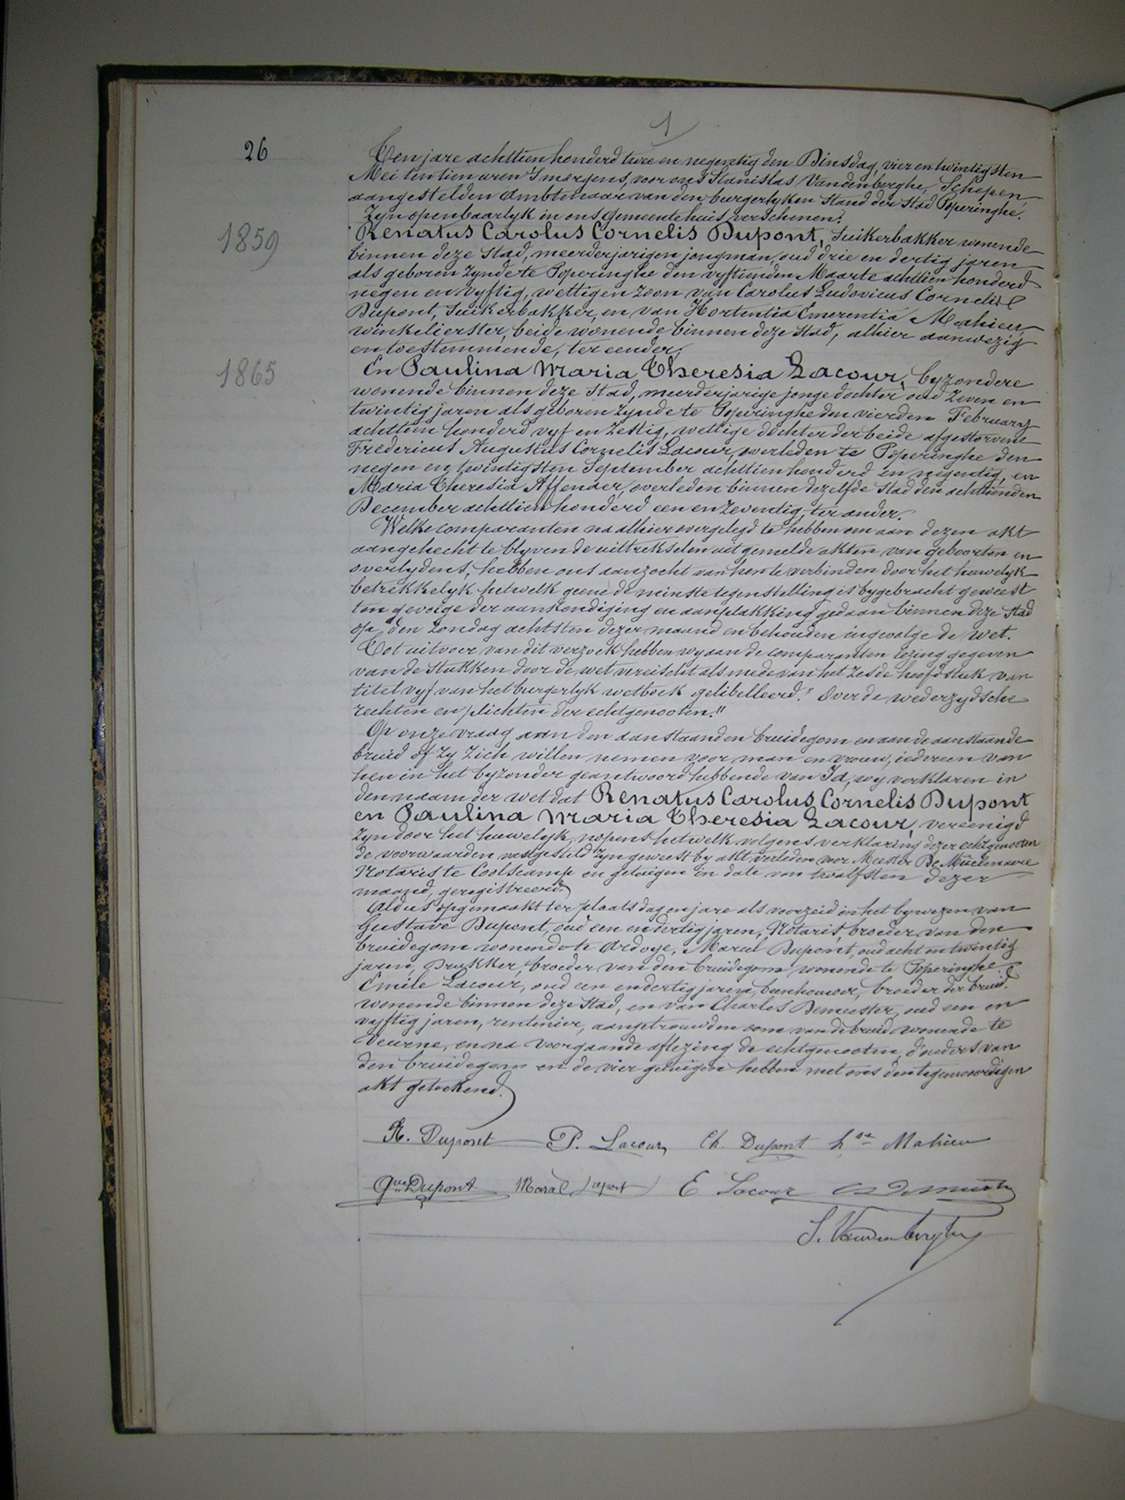 1
26
Ten jare achttien honderd twee en negentig den Dinsdag, vier en twintigsten
Mei ten tien uren 's morgens, voor ons Stanislas Vandenberghe, Schepen,
aangestelden Ambtenaar van den burgerlyken stand der Stad Poperinghe,
Zyn openbaarlyk in ons Gemeentehuis verschenen:
1859
Renatus Carolus Cornelis Dupont, Suikerbakker wonende
binnen deze Stad, meerderjarigen jongman, oud drie en dertig jaren
als geboren zynde te Poperinghe den vyftienden Maarte achttien honderd
negen en vyftig, wettigen zoon van Carolus Ludovicus Cornelis
Dupont, Suikerbakker, en van Hortentia Emerentia Mahieu
winkelierster, beide wonende binnen deze Stad, alhier aanwezig
en toestemmende, ter eender
1865
En Paulina Maria Theresia Lacour, byzondere
wonende binnen deze Stad, meerderjarige jonge dochter oud zeven en
twintig jaren als geboren zynde te Poperinghe den vierden February
achttien honderd vyf en zestig, wettige dochter der beide afgestorvene
Fredericus Augustus Cornelis Lacour, overleden te Poperinghe den
negen en twintigsten September achttien honderd en negentig, en
Maria Theresia Affenaer, overleden binnen dezelfde Stad den achttienden
December achttien honderd een en zeventig, ter ander.
Welke comparanten na alhier overgelegd te hebben om aan dezen akt
aangehecht te blyven de uittrekselen uit gemelde akten van geboorten en
overlydens, hebben ons aanzocht van hen te verbinden door het huwelyk
betrekkelyk hetwelk geene de minste tegenstelling is bygebracht geweest
ten gevolge der aankondiging en aanplakking gedaan binnen deze Stad
op den zondag achtsten dezer maand en behouden ingevolge de wet.
Tot uitvoer van dit verzoek hebben wy aan de comparanten lezing gegeven
van de stukken door de wet vereischt als mede van het zesde hoofdstuk van
titel vyf van het burgerlyk wetboek gelibelleerd "Over de wederzydsche
rechten en plichten der echtgenooten."
Op onze vraag aan den aanstaanden bruidegom en aan de aanstaande
bruid of zy zich willen nemen voor man en vrouw, iedereen van
hen in het byzonder geantwoord hebbende van Ja, wy verklaren in
den naam der wet dat Renatus Carolus Cornelis Dupont
en Paulina Maria Theresia Lacour, vereenigd
zyn door het huwelyk, nopens hetwelk volgens verklaring dezer echtgenooten
de voorwaarden vastgesteld zyn geweest by akt verleden voor Meester De Meulenaere
Notaris te Coolscamp en getuigen in date van twaalfsten dezer
maand, geregistreerd.
Aldus opgemaakt ter plaats dag en jare als voorzeid in het bywezen van
Gustave Dupont, oud een en dertig jaren, Notaris, broeder van den
bruidegom wonende te Ardoye, Marcel Dupont, oud acht en twintig
jaren, Drukker, broeder van den bruidegom, wonende te Poperinghe,
Emile Lacour, oud een en dertig jaren, broeder der bruid,
wonende binnen deze Stad, en van Charles Demeester, oud een en
vyftig jaren, rentenier, aangetrouwden oom van de bruid wonende te
Veurne, en na voorgaande aflezing de echtgenooten, d'ouders van
den bruidegom en de vier getuigen hebben met ons den tegenwoordigen
akt geteekend.
R. Dupont P. Lacour Ch. Dupont Mahieu
Gve Dupont Marcel Dupont E Lacour
S. Vandenberghe